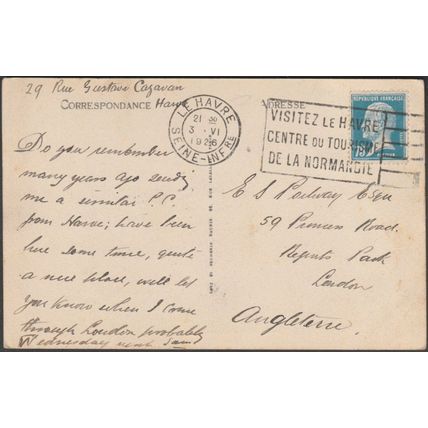 29 Rue Gustave Cazavan
CORRESPONDANCE Havre
ADRESSE
LE HAVRE
21
3 · VI
1926
SEINE-INFRE
VISITEZ LE HAVRE
CENTRE DU TOURISME
DE LA NORMANDIE
RÉPUBLIQUE FRANÇAISE
Do you remember
many years ago sending
me a similar P.C.
from Havre; have been
here some time, quite
a nice place, will let
you know when I come
through London probably
Wednesday next
E S Esqre
59 Princess Road
Regents Park
London
Angleterre